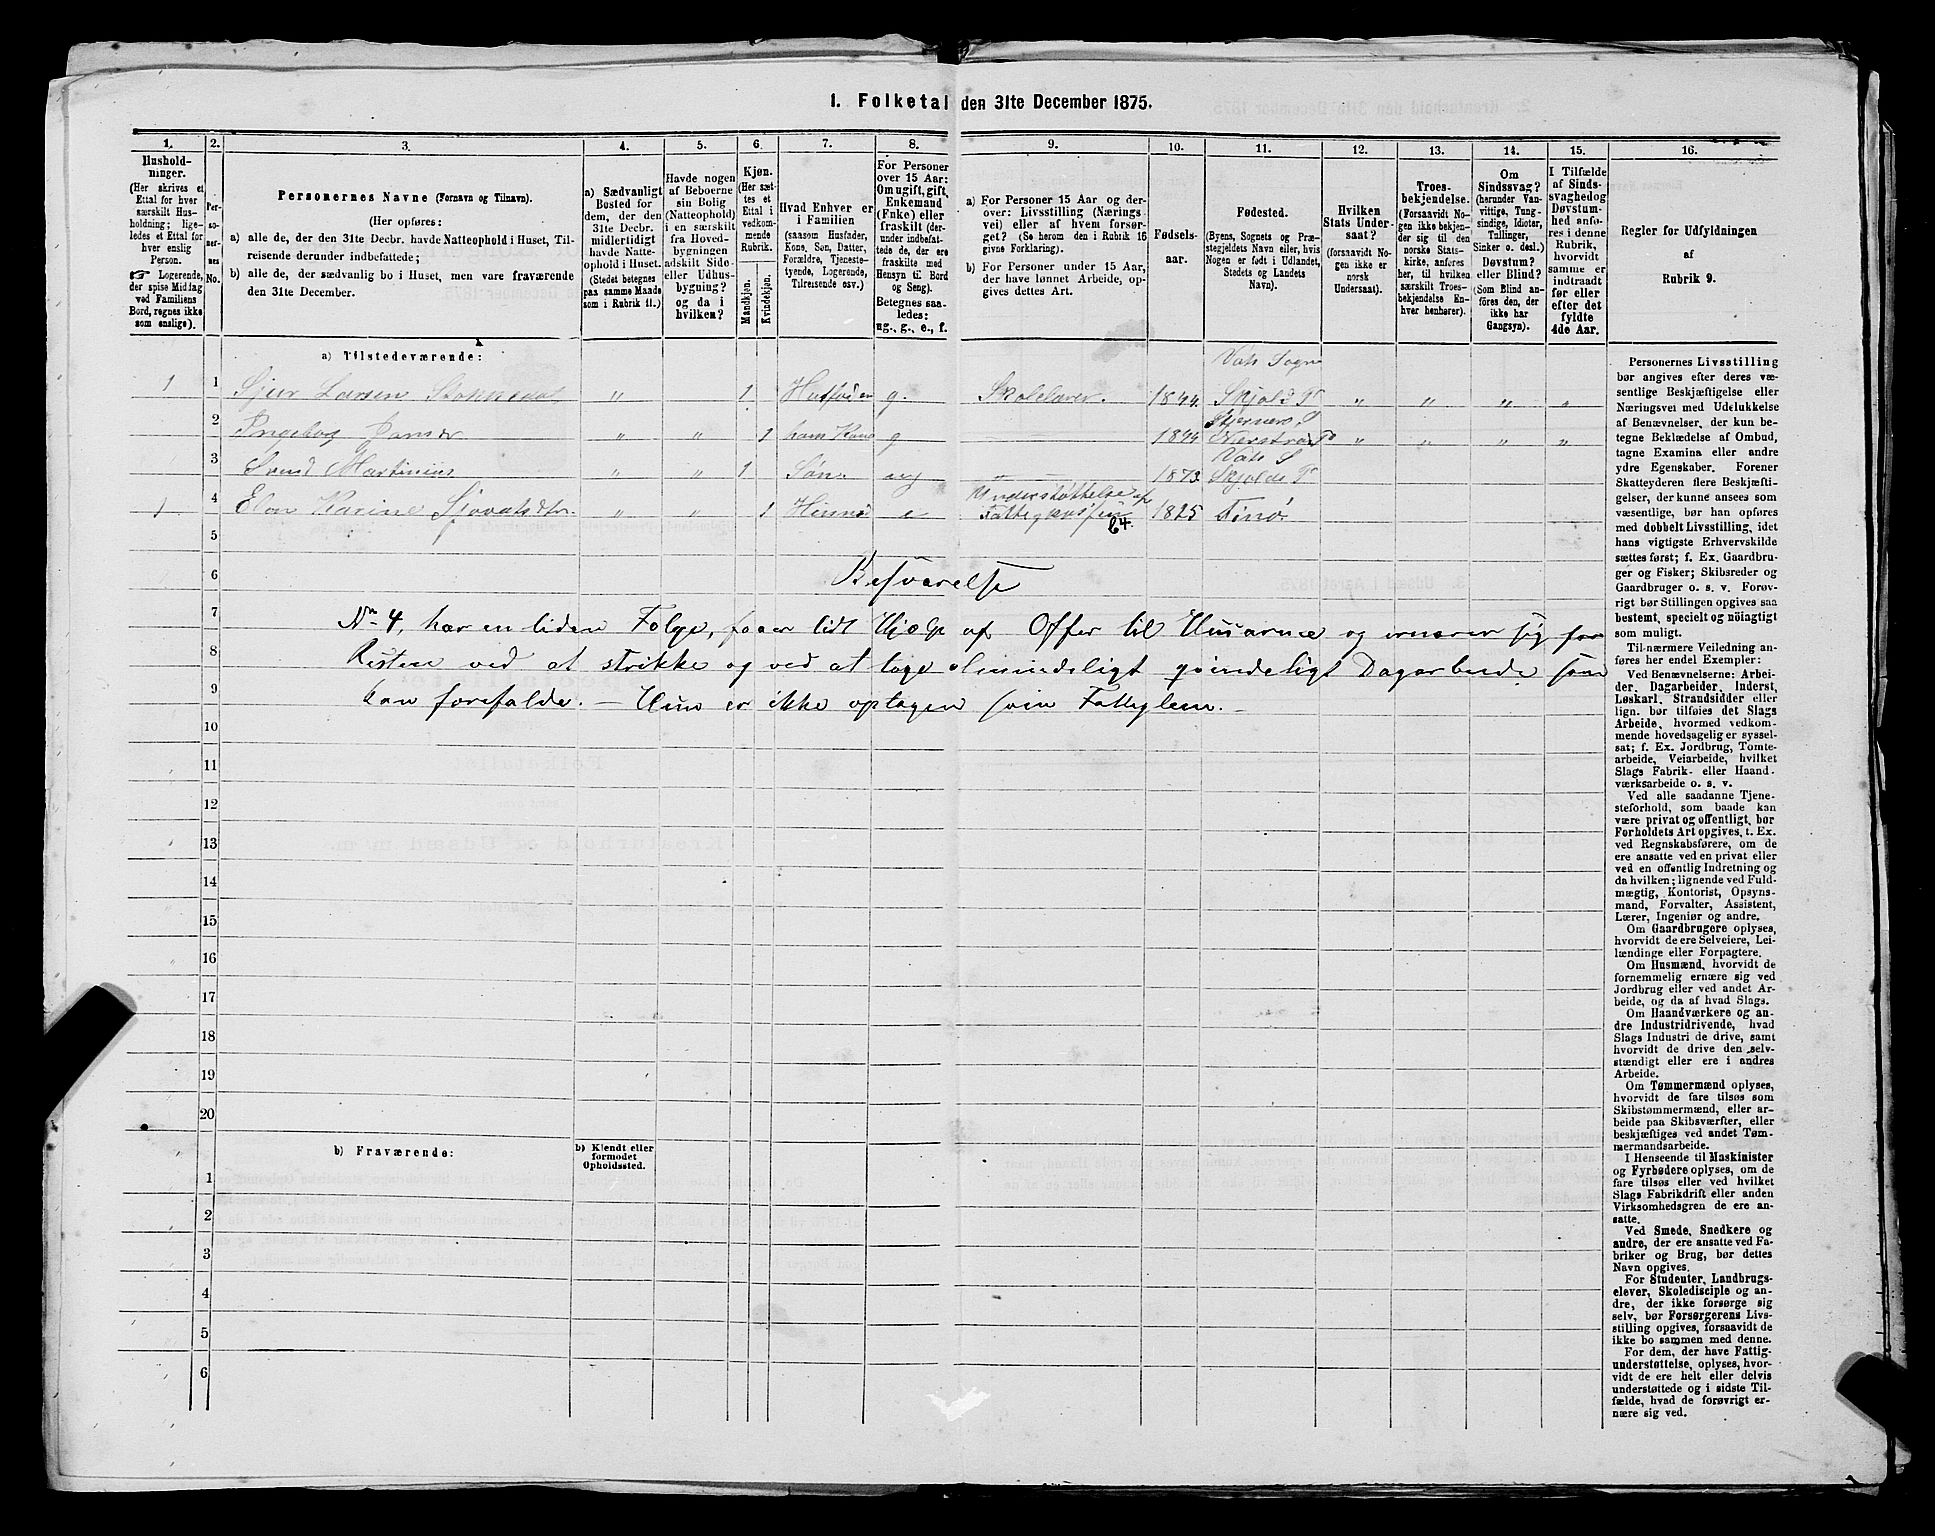 1. Folketal den 31te December 1875.
1. 2. 3. 4. 5. 6. 7. 8. 9. 10. 11. 12. 13. 14. 15. 16.
Hushold-
ninger.
(Her skrives et
Ettal for hver
særskilt Hus-
holdning; lige-
ledes et Ettal for
hver enslig
Person.
☞ Logerende,
der spise Middag
ved Familiens
Bord, regnes ikke
som enslige).
Per-
so-
ner-
nes
No.
Personernes Navne (Fornavn og Tilnavn).
(Her opføres:
a) alle de, der den 31te Decbr. havde Natteophold i Huset, Til-
reisende derunder indbefattede;
b) alle de, der sædvanlig bo i Huset, men vare fraværende
den 31te December.
a) Sædvanligt
Bosted for
dem, der den
31te Decbr.
midlertidigt
havde Natte-
ophold i Huset.
(Stedet betegnes
paa samme Maade
som i Rubrik 11.)
Havde nogen
af Beboerne
sin Bolig
(Natteophold)
i en særskilt
fra Hoved-
bygningen
adskilt Side-
eller Udhus-
bygning?
og da i
hvilken?
Kjøn.
(Her sæt-
tes et
Ettal i
vedkom-
mende
Rubrik.
Mandkjøn.
Kvindekjøn.
Hvad Enhver er
i Familien
(saasom Husfader,
Kone, Søn, Datter,
Forældre, Tjeneste-
tyende, Logerende,
Tilreisende osv.)
For Personer
over 15 Aar:
Om ugift, gift,
Enkemand
(Enke) eller
fraskilt (der-
under indbefat-
tede de, der ere
fraskilte med
Hensyn til Bord
og Seng).
Betegnes saa-
ledes:
ug., g., e., f.
a) For Personer 15 Aar og der-
over: Livsstilling (Nærings-
vei) eller af hvem forsør-
get? (Se herom den i Rubrik 16
givne Forklaring).
b) For Personer under 15 Aar,
der have lønnet Arbeide, op-
gives dettes Art.
Fødsels-
aar.
Fødested.
(Byens, Sognets og Præ-
stegjeldets Navn eller, hvis
Nogen er født i Udlandet,
Stedets og Landets
Navn).
Hvilken
Stats Under-
saat?
(forsaavidt No-
gen ikke er
norsk
Undersaat).
Troes-
bekjendelse.
(Forsaavidt No-
gen ikke bekjen-
der sig til den
norske Stats-
kirke, anføres
her, til hvilken
særskilt Troes-
bekjendelse En-
hver henhører).
Om
Sindssvag?
(herunder Van-
vittige, Tung-
sindige, Idioter,
Tullinger,
Sinker o. desl.)
Døvstum?
eller Blind?
(Som Blind an-
føres den, der
ikke har
Gangsyn).
I Tilfælde
af Sinds-
svaghed og
Døvstum-
hed anfø-
res i denne
Rubrik,
hvorvidt
samme er
indtraadt
før eller
efter det
fyldte
4de Aar.
Regler for Udfyldningen
af
Rubrik 9.
a) Tilstedeværende:
Vats Sogn
1 1 Sjur Larsen " 1 Husfader g. Skolelærer. 1844. Skjold P " " " "
2 Ingebog " " 1 hans Kone g 1844 " " " "
Vats S
3 Svend Martinius " " 1 Søn ug 1873. Skjolds P
Understøttelse af
1 4 Elen Karine " " 1 e 1825
64.
5
6 Besvarelse
7 No 4, har en liden Folge, faaer lidt Hjælp af Offer til Husarme og ernærer sig for
8 Resten ved at strikke og ved at tage almindeligt qvindeligt Dagarbeide som
9 kan forefalde. – Hun er ikke optagen som Fatteglem. –
10
11
12
13
14
15
16
17
18
19
20
b) Fraværende:
b) Kjendt eller
formodet
Opholdssted.
1
2
3
4
5
6
Personernes Livsstilling
bør angives efter deres væ-
sentlige Beskjæftigelse eller
Næringsvei med Udelukkelse
af Benævnelser, der kun be-
tegne Beklædelse af Ombud,
tagne Examina eller andre
ydre Egenskaber. Forener
Skatteyderen flere Beskjæfti-
gelser, der kunne ansees som
væsentlige, bør han opføres
med dobbelt Livsstilling, idet
hans vigtigste Erhvervskilde
sættes først; f. Ex. Gaardbru-
ger og Fisker; Skibsreder og
Gaardbruger o. s. v. Forøv-
rigt bør Stillingen opgives saa
bestemt, specielt og nøiagtigt
som muligt.
Til nærmere Veiledning an-
føres her endel Exempler:
Ved Benævnelserne: Arbei-
der, Dagarbeider, Inderst,
Løskarl, Strandsidder eller
lign. bør tilføies det Slags
Arbeide, hvormed vedkom-
mende hovedsagelig er syssel-
sat; f. Ex. Jordbrug, Tomte-
arbeide, Veiarbeide, hvilket
Slags Fabrik- eller Haand-
værksarbeide o. s. v.
Ved alle saadanne Tjene-
steforhold, som baade kan
være privat og offentligt, bør
Forholdets Art opgives, t. Ex.
ved Regnskabsførere, om de
ere ansatte ved en privat eller
ved en offentlig Indretning og
da hvilken; lignende ved Fuld-
mægtig, Kontorist, Opsyns-
mand, Forvalter, Assistent,
Lærer, Ingeniør og andre.
Om Gaardbrugere oplyses,
hvorvidt de ere Selveiere, Lei-
lændinge eller Forpagtere.
Om Husmænd, hvorvidt de
fornemmelig ernære sig ved
Jordbrug eller ved andet Ar-
beide, og da af hvad Slags.
Om Haandværkere og an-
dre Industridrivende, hvad
Slags Industri de drive, samt
hvorvidt de drive den selv-
stændigt eller ere i andres
Arbeide.
Om Tømmermænd oplyses,
hvorvidt de fare tilsøs som
Skibstømmermænd, eller ar-
beide paa Skibsværfter, eller
beskjæftiges ved andet Tøm-
mermandsarbeide.
I Henseende til Maskinister
og Fyrbødere oplyses, om de
fare tilsøs eller ved hvilket
Slags Fabrikdrift eller anden
Virksomhedsgren de ere an-
satte.
Ved Smede, Snedkere og
andre, der ere ansatte ved Fa-
briker og Brug, bør dettes
Navn opgives.
For Studenter, Landbrugs-
elever, Skoledisciple og an-
dre, der ikke forsørge sig
selv, bør Forsørgerens Livs-
stilling opgives, forsaavidt de
ikke bo sammen med denne.
For dem, der have Fattig-
understøttelse, oplyses, hvor-
vidt de ere helt eller delvis
understøttede og i sidste Til-
fælde, hvad de forøvrigt er-
nære sig ved.